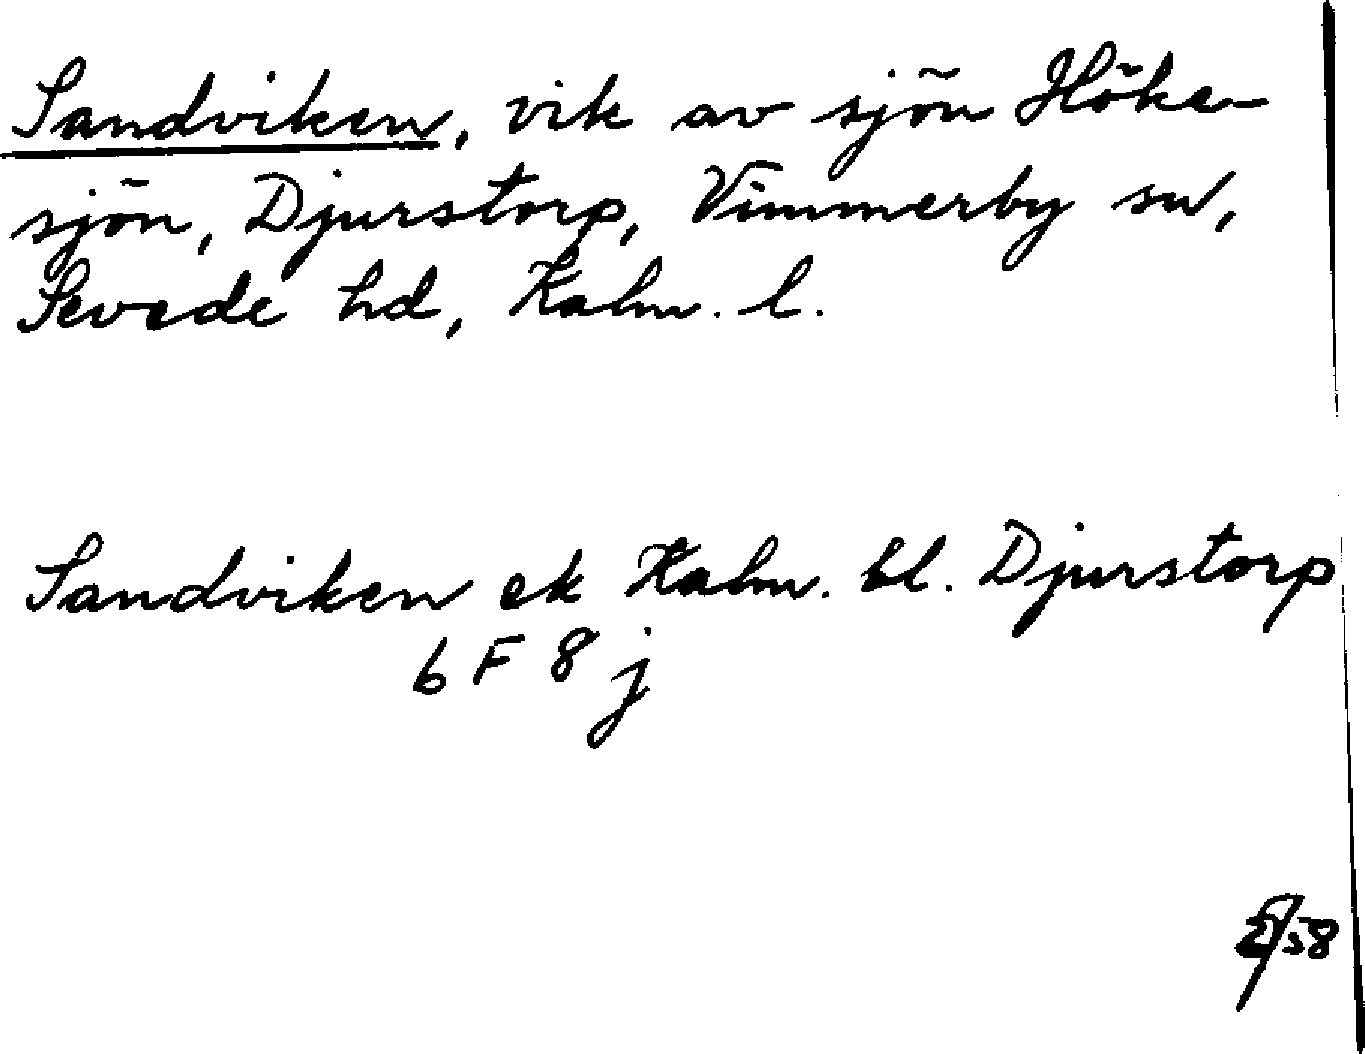 Sandviken, vik av sjön Höke-
sjön, Djurstorp, Vimmerby sn,
Sevede hd, Kalm. l.
Sandviken ek Kalm. bl. Djurstorp
6 F 8 j
58